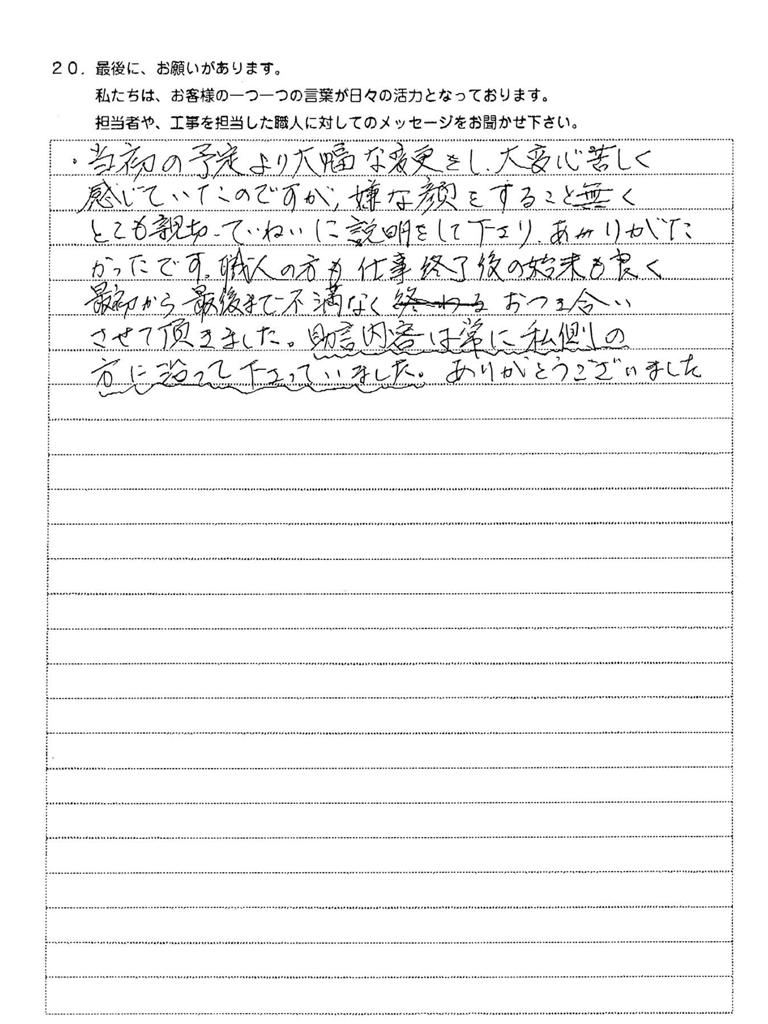 20．最後に、お願いがあります。
私たちは、お客様の一つ一つの言葉が日々の活力となっております。
担当者や、工事を担当した職人に対してのメッセージをお聞かせ下さい。
・当初の予定より大幅な変更をし、大変心苦しく
感じていたのですが、嫌な顔をすること無く
とても親切、ていねいに説明をして下さり、ありがた
かったです。職人の方も仕事終了後の始末も良く
最初から最後まで不満なく終わるおつき合い
させて頂きました。助言内容は常に私側の
方に沿って下さっていました。ありがとうございました